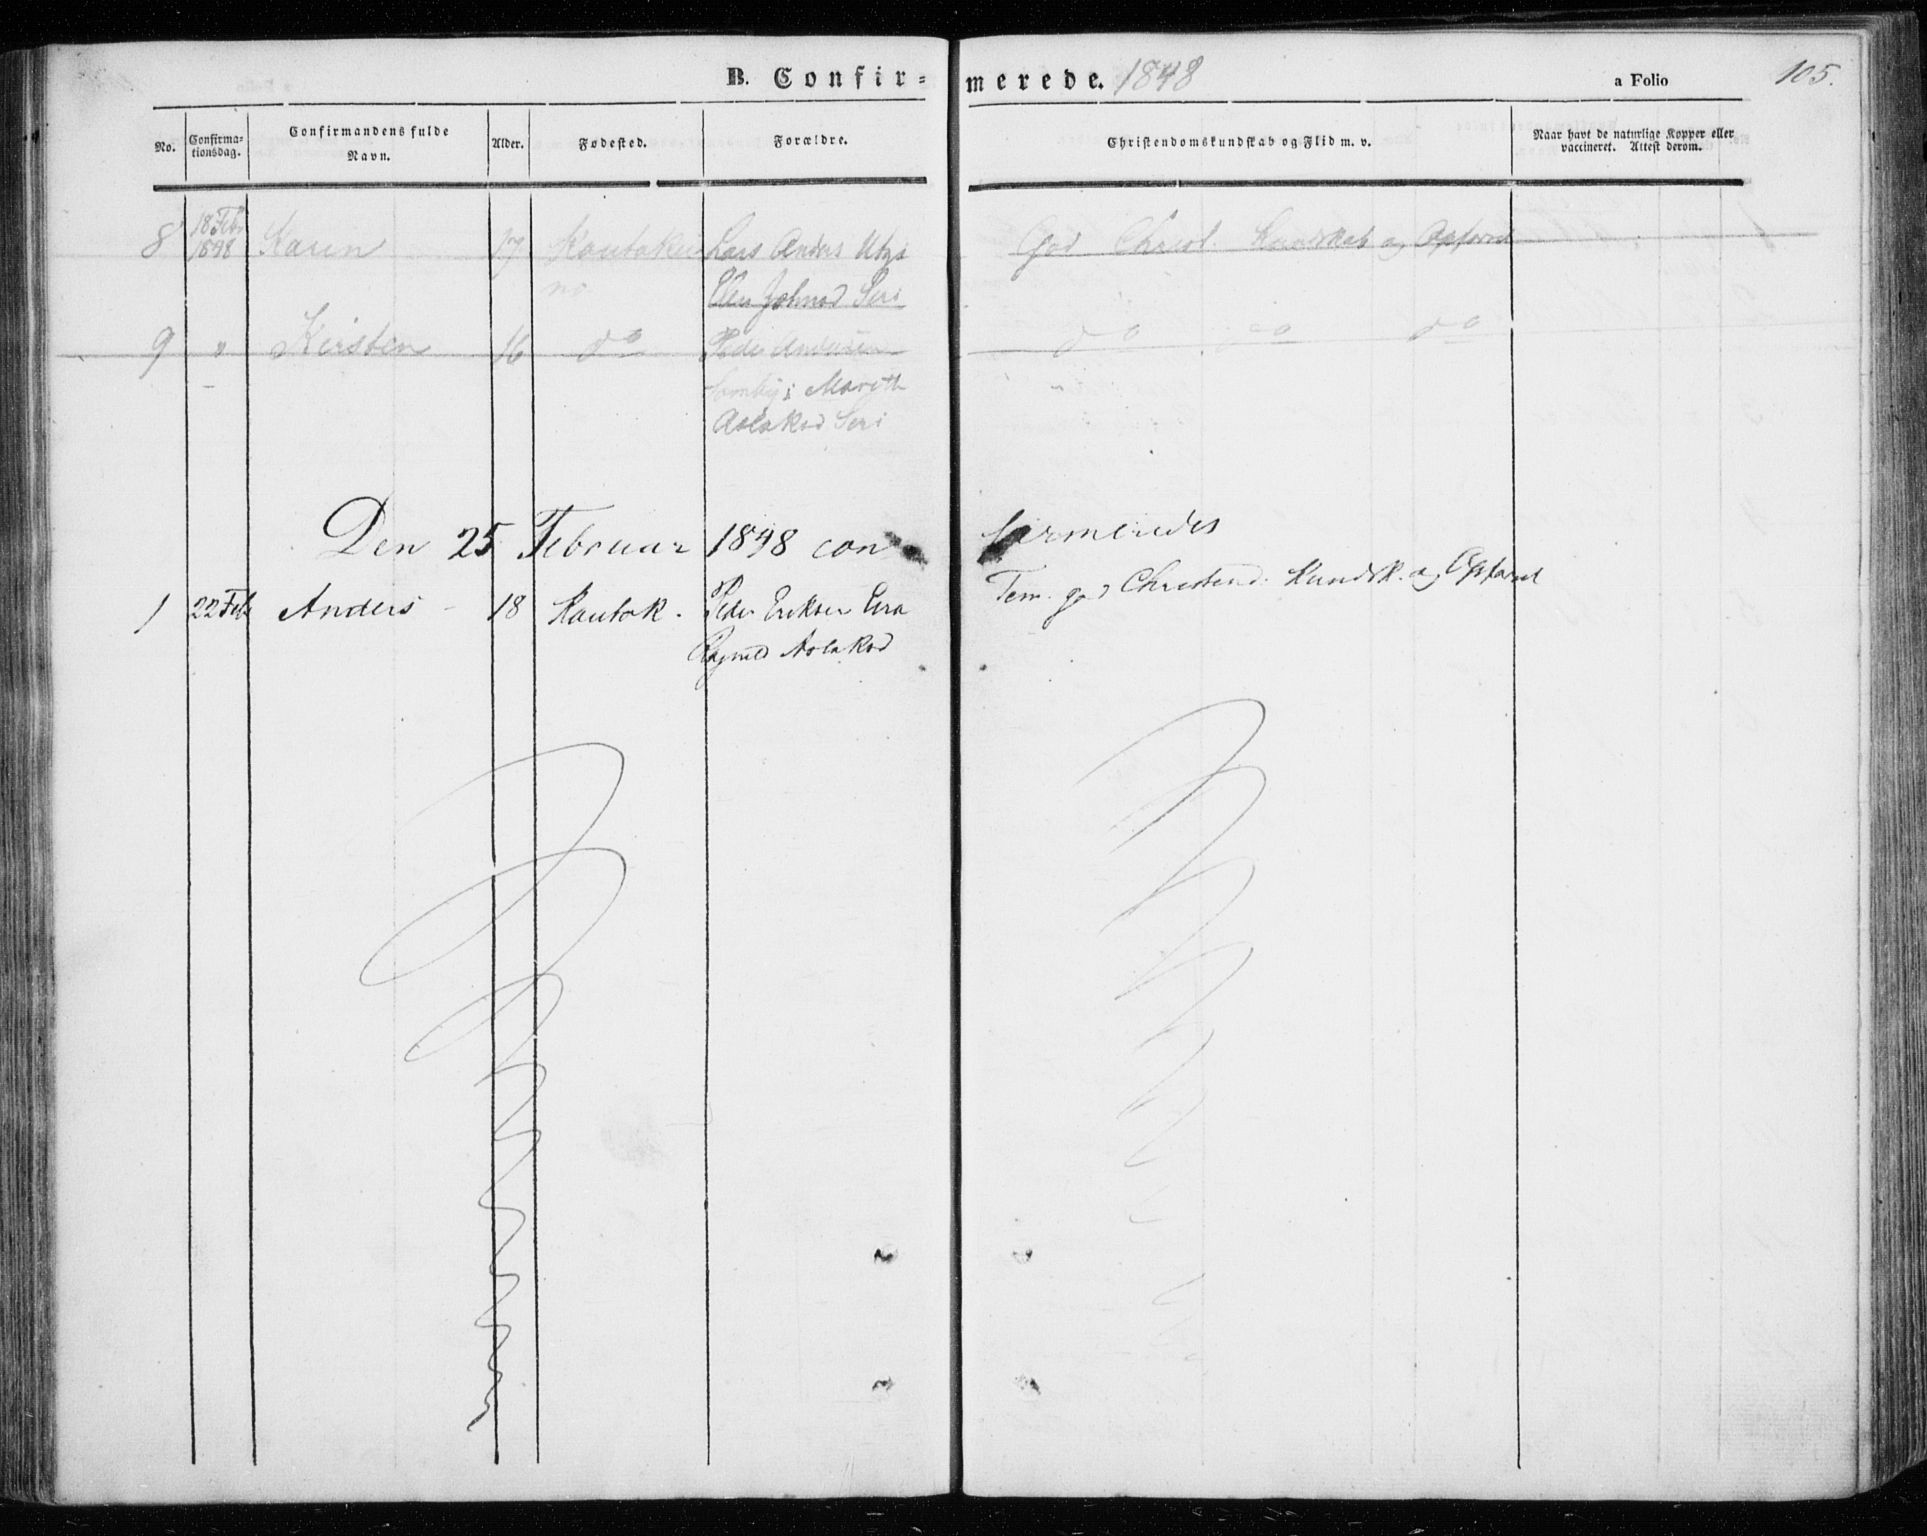 B. Confirmerede. 1848 a Folio 105.
No. Confirmationsdag. Confirmandens fulde Navn. Alder. Fødested. Forældre. Christendomskundskab og Flid m. v. Naar havt de naturlige Kopper eller vaccineret. Attest derom.
8 18 Febr 1848 Karen 17 Kautokei Lars Anders Utzi God Christ. Kundskab og Opførsel
no Ellen Johnsd Seri
9 " Kirsten 16 do Peder Andersen do do do
Somby; Marith
Aslaksd Seri
Den 25 Februar 1848 confirmeredes
1 22 Feb Anders - 18 Kautok. Peder Eriksen Eira Tem. god Christend. Kundsk. og Opførsel
Ragnild Aslaksd